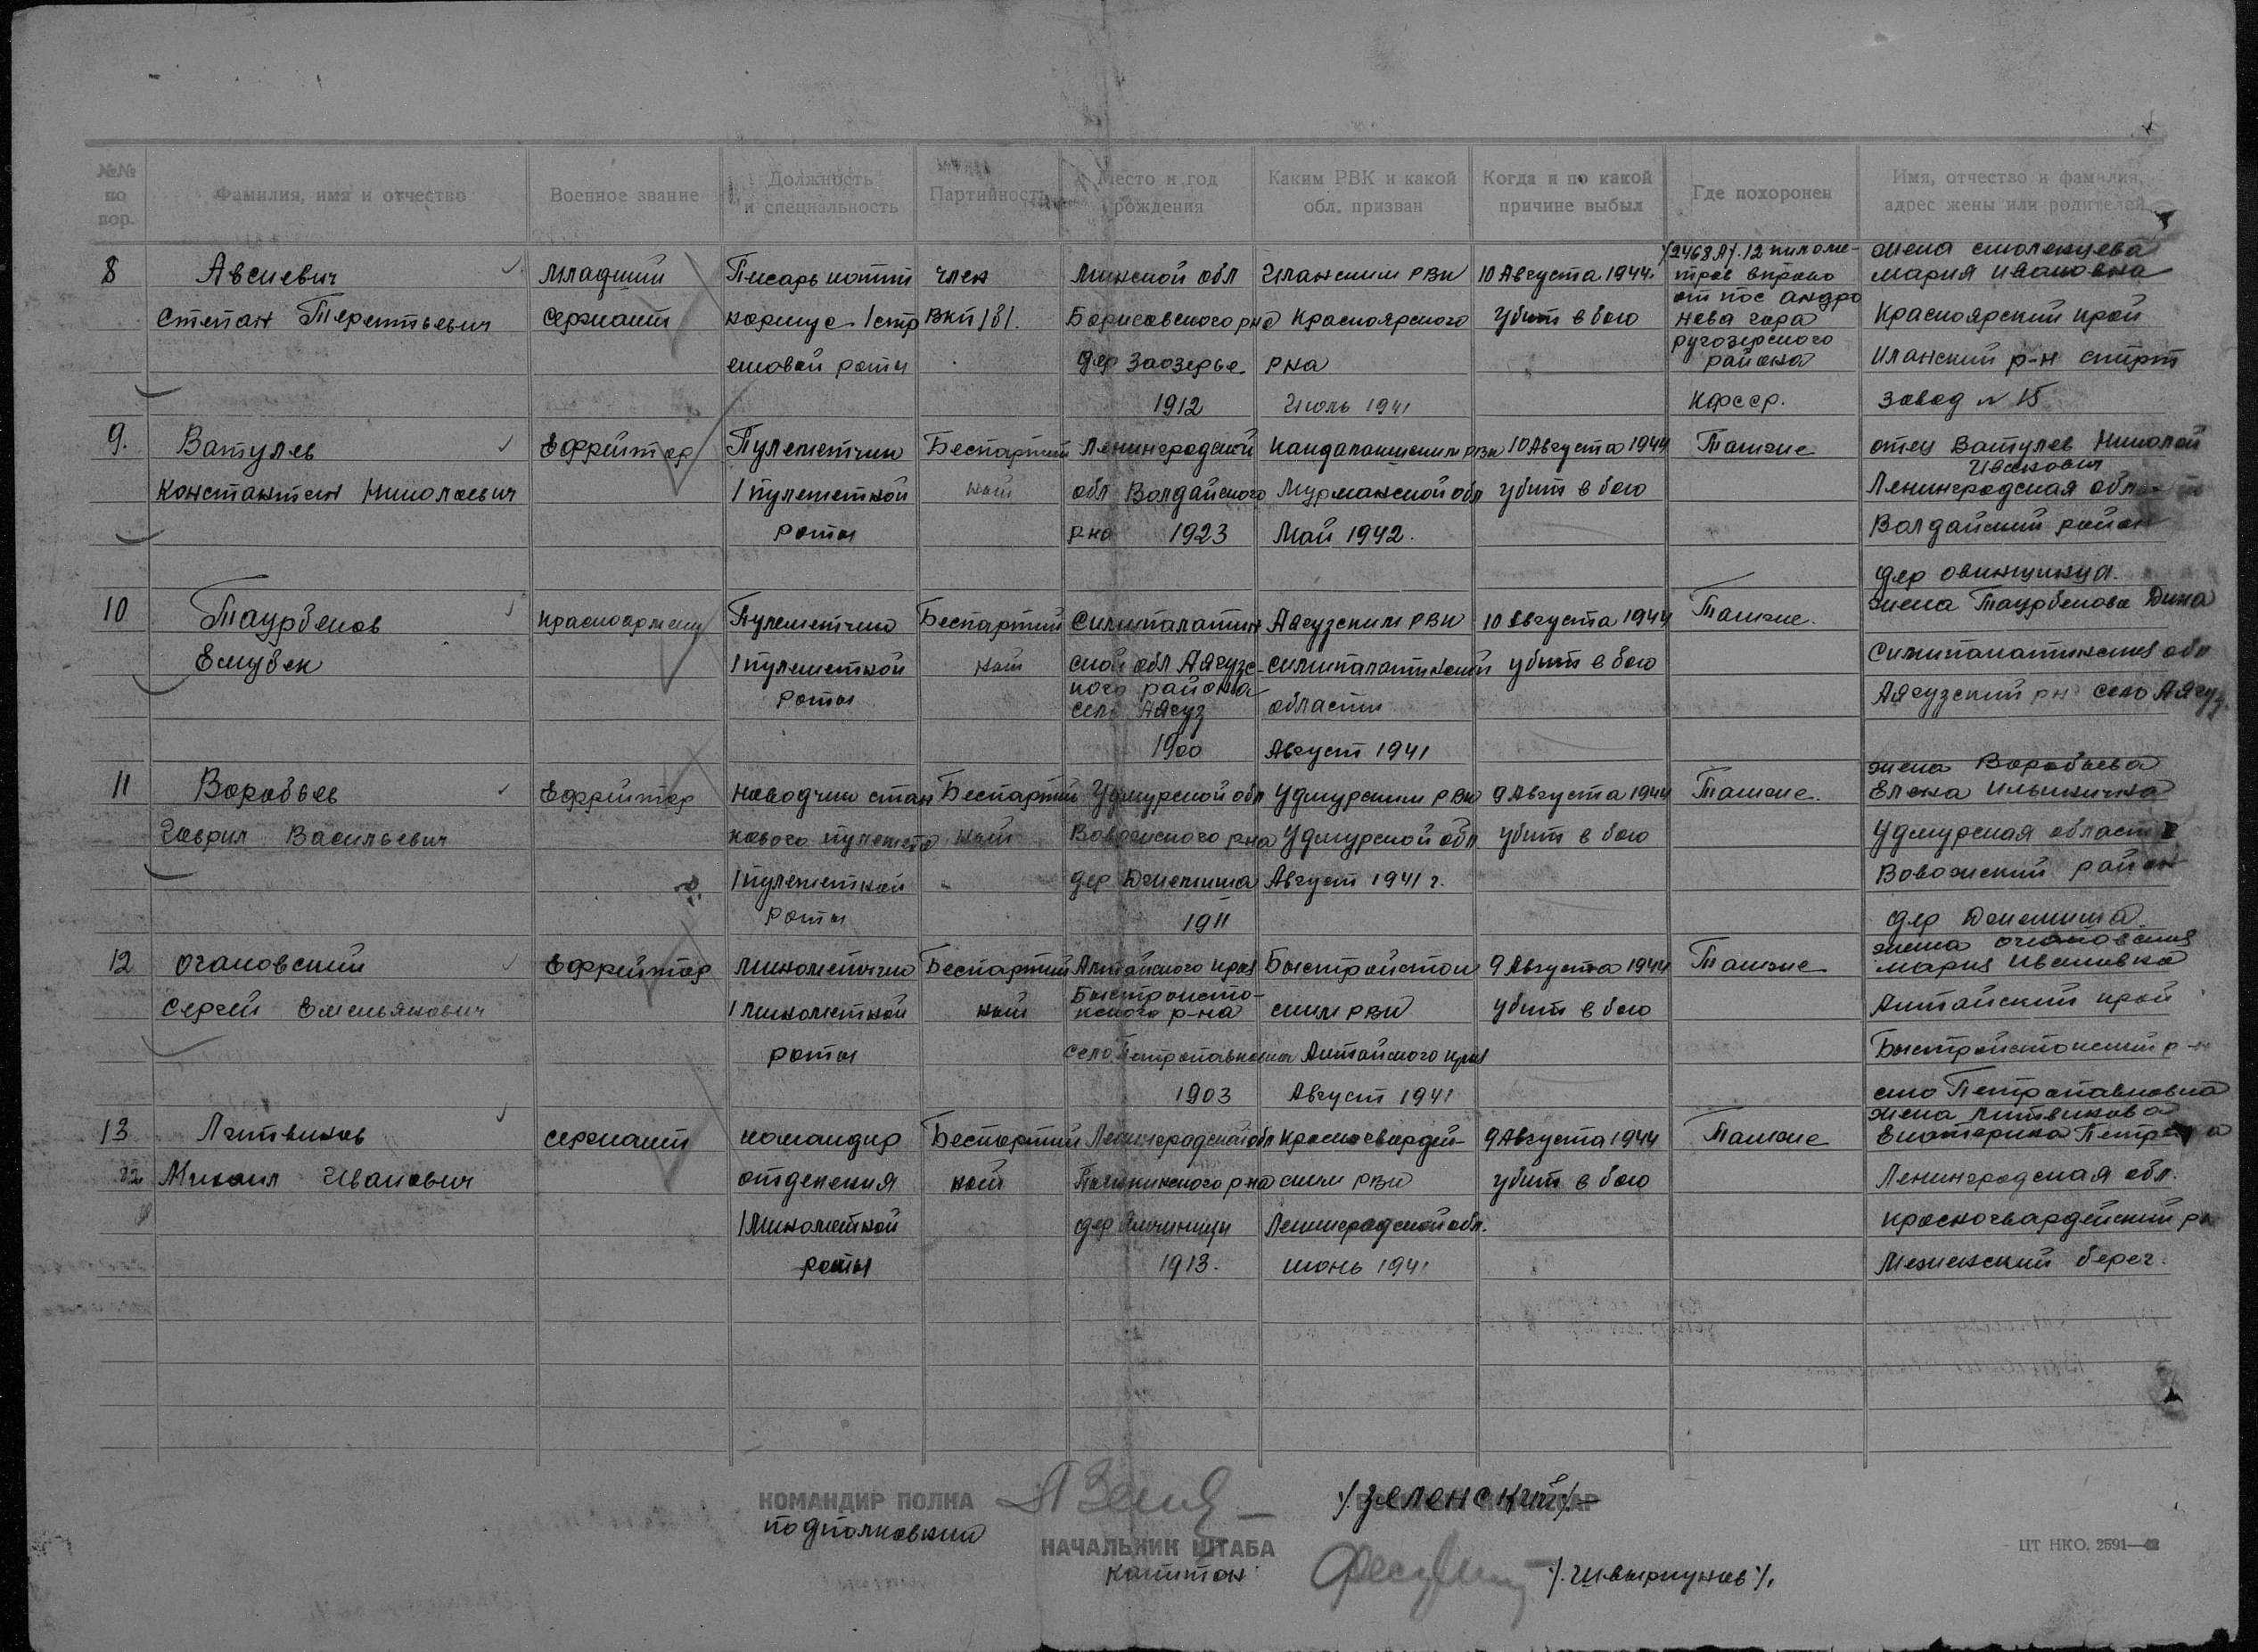 №№ по пор.
Фамилия, имя и отчество
Военное звание
Должность и специальность
Партийность
Место и год рождения
Каким РВК и какой обл. призван
Когда и по какой причине выбыл
Где похоронен
Имя, отчество и фамилия, адрес жены или родителей
8
Авсиевич
Степан Терентьевич
Младший
Сержант
Писарь
1 стр
елковой роты
член
ВКП/б/.
Минской обл
Борисовского рна
дер Заозерье
1912
Иланским РВК
Красноярского
рна
Июль 1941
10 Августа 1944
убит в бою
12 киломе-
тров
от пос Андро
нова гора
ругозерского
района
КФССР.
жена Смоленцева
Мария Ивановна
Красноярский край
Иланский р-н спирт
завод N 15
9.
Ватулев
Константин Николаевич
Ефрейтор
Пулеметчик
1 пулеметной
роты
Беспартий
ный
Ленинградской
обл Валдайского
рна 1923
Кандалакшским РВК
Мурманской обл
Май 1942.
10 Августа 1944
убит в бою
Там же
отец Ватулев Николай
Иванович
Ленинградская обл
Валдайский район
дер
10
Таурбеков
Емубек
Красноармеец
Пулеметчик
1 пулеметной
роты
Беспартий
ный
Семипалатин
ской обл Аягузс-
кого района
село Аягуз
1900
Аягузским РВК
Семипалатинской
области
Август 1941
10 Августа 1944
убит в бою
Там же.
жена Таурбекова Дина
Семипалатинская обл
Аягузский рн село Аягуз
11
Воробьев
Гаврил Васильевич
Ефрейтор
Наводчик стан
кового пулемета
1 пулеметной
роты
Беспартий
ный
Удмурской обл
Вавожского рна
дер
1911
Удмурским РВК
Удмурской обл
Август 1941 г.
9 Августа 1944
убит в бою
Там же.
жена Воробьева
Елена Ильинична
Удмурская область
Вавожский район
дер
12
Очаковский
Сергей Емельянович
Ефрейтор
Минометчик
1 минометной
роты
Беспартий
ный
Алтайского края
Быстроисто-
кского р-на
село Петропавловка
1903
Быстройсток
ским РВК
Алтайского края
Август 1941
9 Августа 1944
убит в бою
Там же
жена Очаковская
Мария Ивановна
Алтайский край
Быстройстокский р-н
село Петропавловка
13
Литвиков
Михаил Иванович
Сержант
командир
отделения
1 минометной
роты
Беспартий
ный
Ленинградской обл
рна
дер
1913.
Красногвардей-
ским РВК
Ленинградской обл.
июнь 1941
9 Августа 1944
убит в бою
Там же
жена Литвикова
Екатерина Петровна
Ленинградская обл.
Красногвардейский рн
берег.
КОМАНДИР ПОЛКА
подполковник
/Зеленский/
НАЧАЛЬНИК ШТАБА
капитан
ЦТ НКО. 2591—42